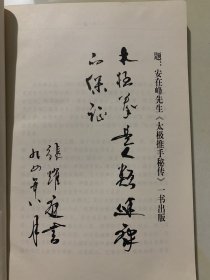 题：安在峰先生《太极推手秘传》一书出版
太极拳是人类健康
的保证
张耀庭书
九四年八月